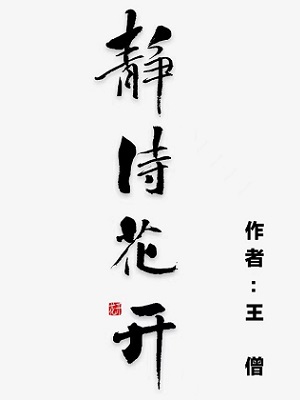 静待花开
作者：王 僧